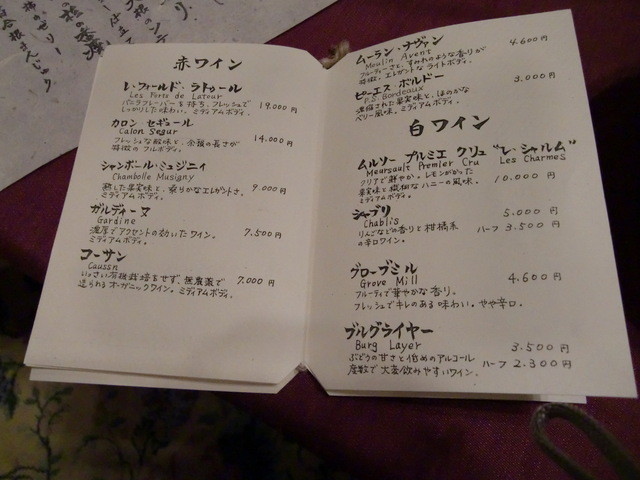 赤ワイン
レ・フォールド・ラトゥール
Les Forts de Latour
バニラフレーバーを持ち、フレッシュで
しっかりした味わい。ミディアムボディ。
19.000円
カロン セギュール
Calon Segur
フレッシュな酸味と、余韻の長さが
特徴の フルボディ。
14.000円
シャンボール・ミュジニィ
Chambolle Musigny
熟した果実味と、柔らかなエレガントさ。
ミディアムボディ。
9.000円
ガルディーヌ
Gardine
濃厚でアクセントの効いたワイン。
ミディアムボディ。
7.500円
コーサン
Caussn
いっさい有機栽培をせず、無農薬で
造られるオーガニックワイン。ミディアムボディ。
7.000円
ムーラン・ナヴァン
Moulin Avent
フルーティーさと、すみれのような香りが
特徴。エレガントな ライトボディ。
4.600円
ピーエス・ボルドー
P.S Bordeaux
凝縮された果実味と、ほのかな
ベリー風味。ミディアムボディ。
3.000円
白ワイン
ムルソー プルミエ クリュ "レ・シャルム"
Meursault Premier Cru Les Charmes
クリアで鮮やか。レモンがかった
果実味と 繊細なハニーの風味。
10.000円
シャブリ
Chablis
りんごなどの香りと 柑橘系
の辛口ワイン。
5.000円
ハーフ 3.500円
グローブミル
Grove Mill
フルーティで華やかな香り。
フレッシュでキレのある味わい。やや辛口。
4.600円
ブルグライヤー
Burg Layer
ぶどうの甘さと低めのアルコール
度数で 大変飲みやすいワイン。
3.500円
ハーフ 2.300円